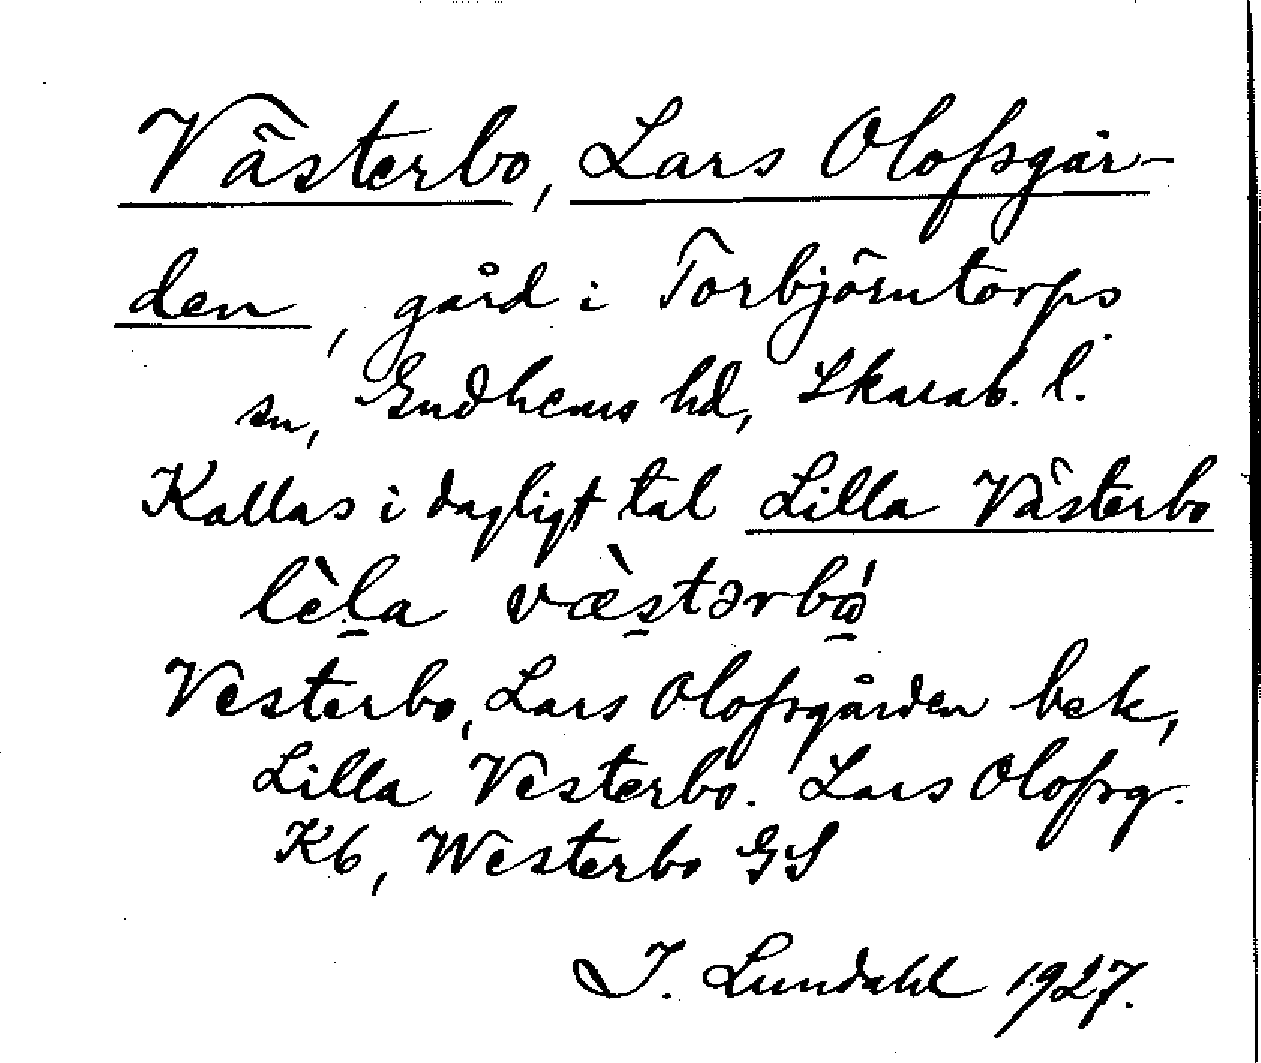 Västerbo, Lars Olofsgår-
den, gård i Torbjörntorps
sn, Gudhems hd, Skarab. l.
Kallas i dagligt tal Lilla Västerbo
lèla væ̀stərbó
Vesterbo, Lars Olofsgården bek,
Lilla Vesterbo. Lars Olofsg.
Kb, Westerbo GS
I. Lundahl 1927.